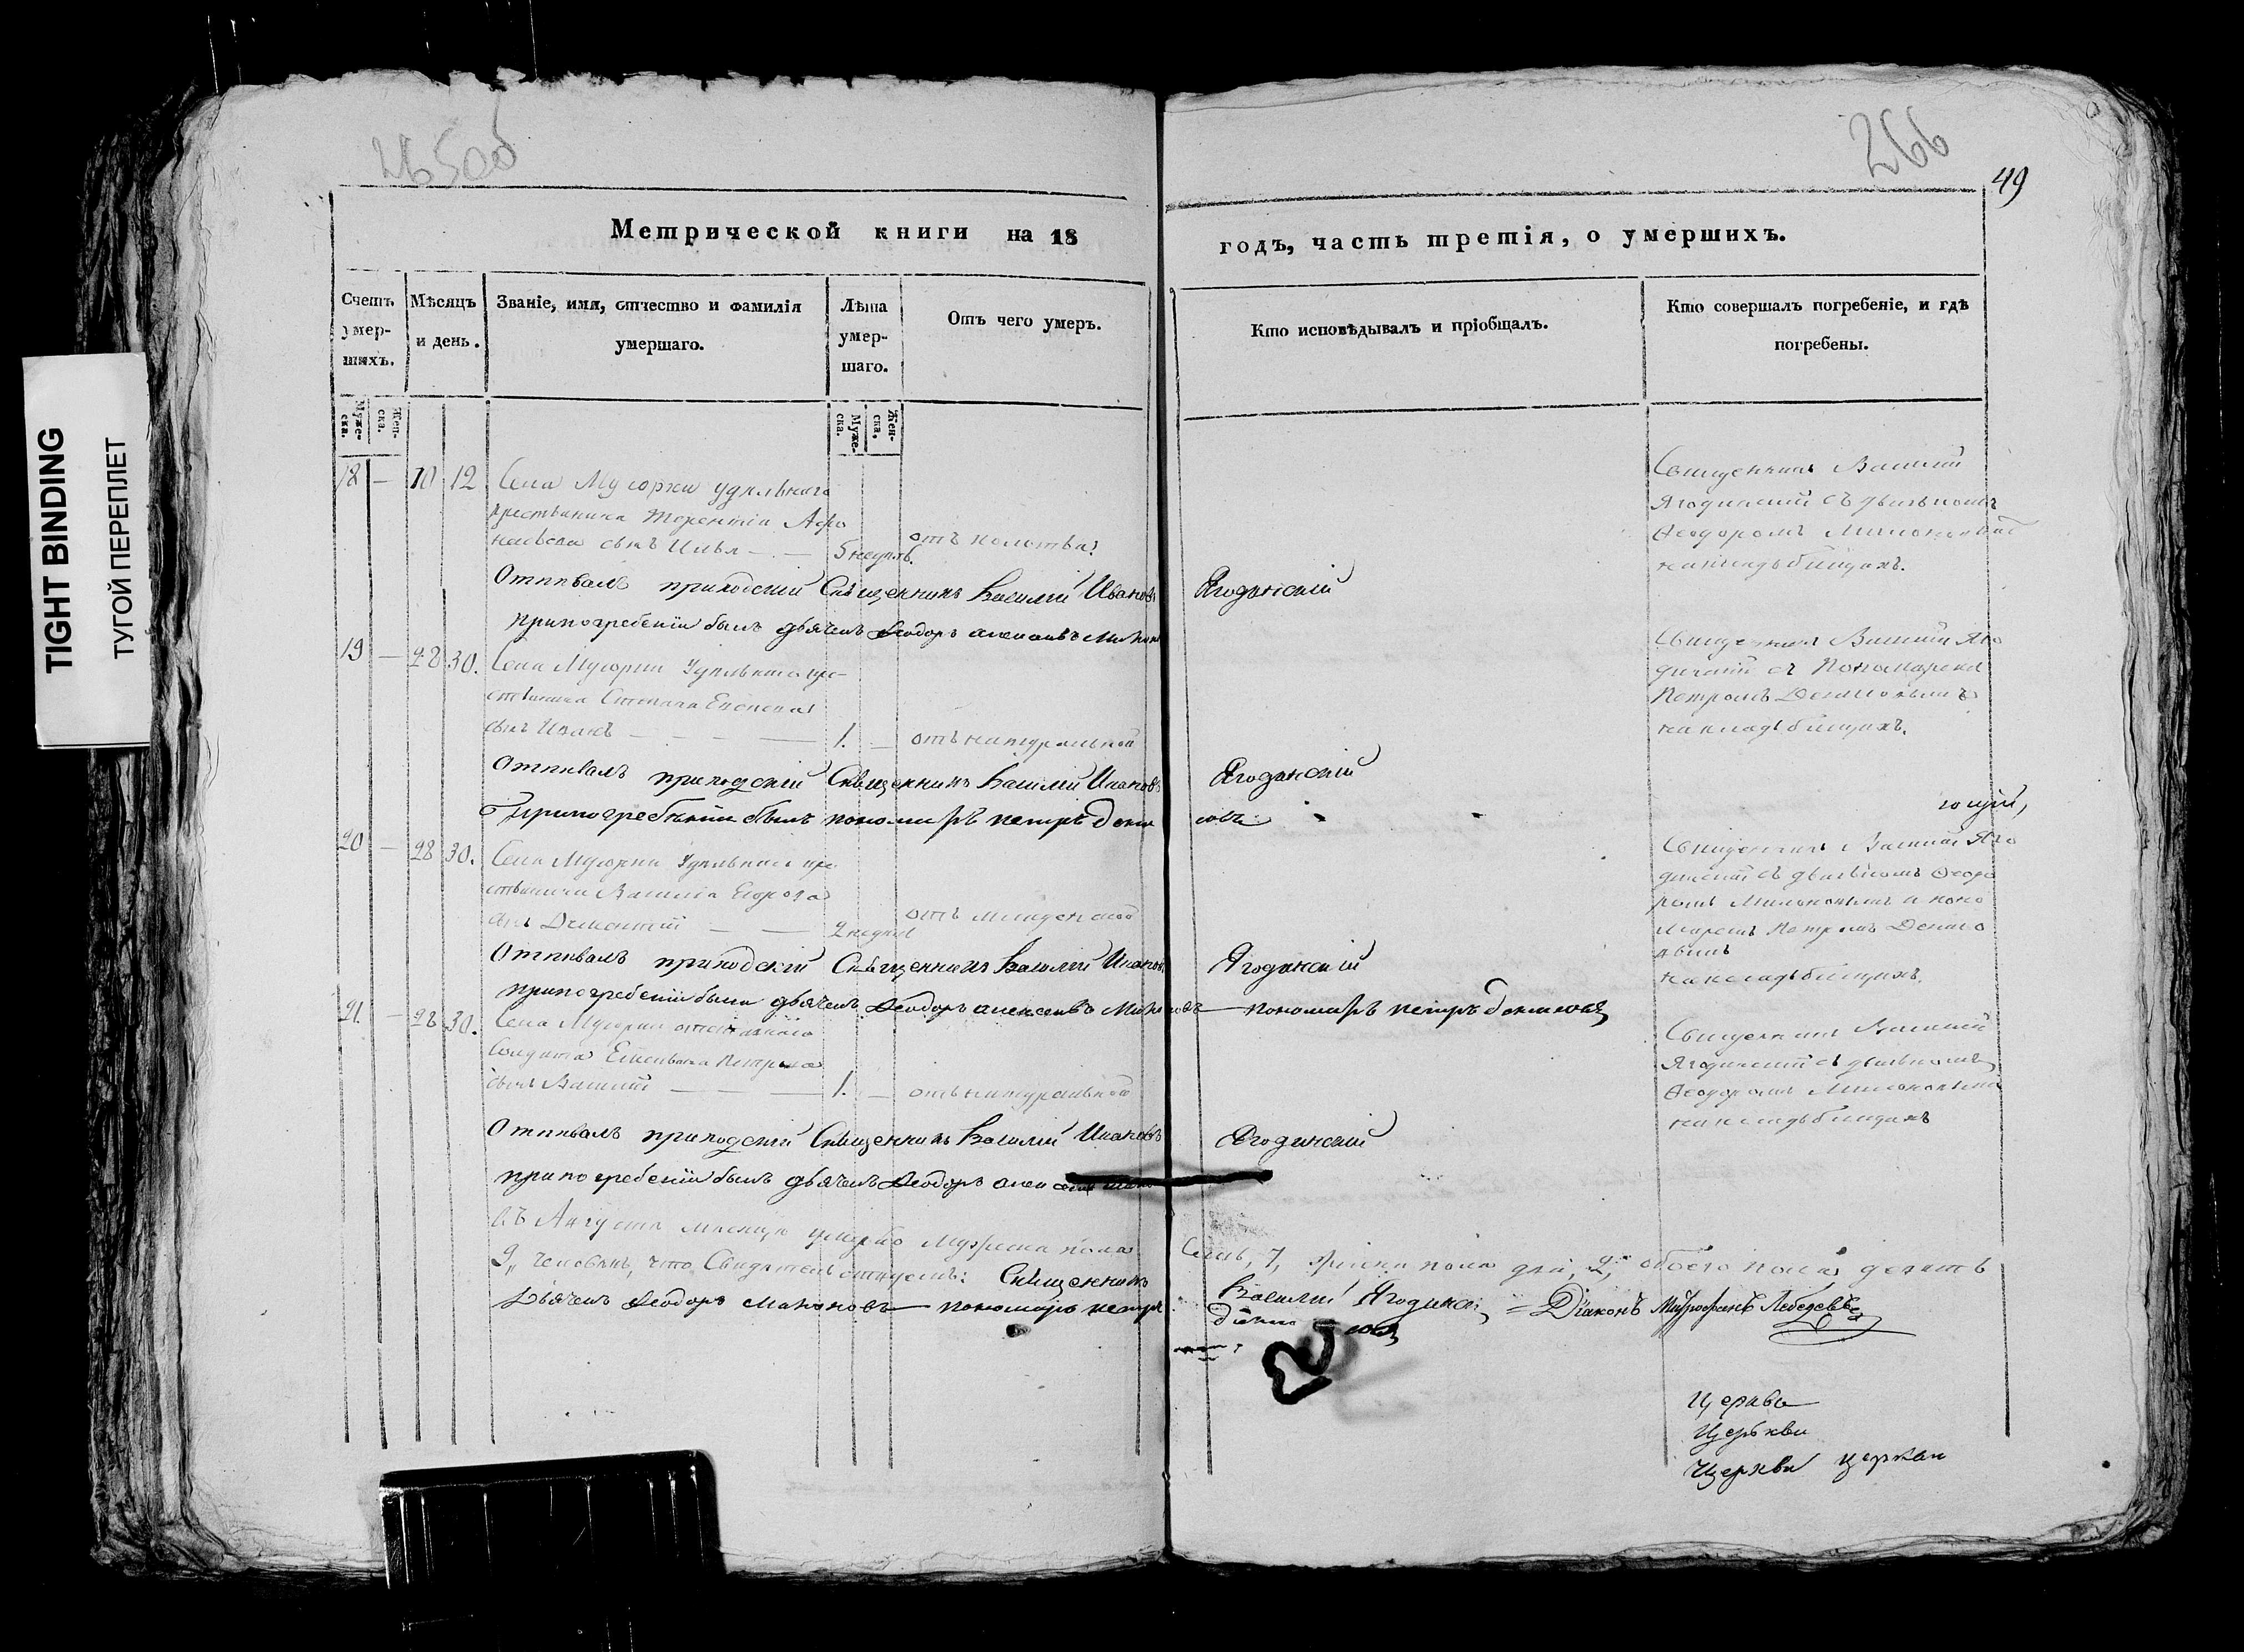 265об
266
49
Метрической книги на 18
годъ, часть третія, о умершихъ.
Счетъ умер-шихъ.
Мѣсяцъ и день.
Званіе, имя, отчество и фамилія умершаго.
Лѣта умер-шаго.
Отъ чего умеръ.
Кто исповѣдывалъ и пріобщалъ.
Кто совершалъ погребеніе, и гдѣ погребены.
Муже-ска.
Жен-ска.
Муже-ска.
Жен-ска.
TIGHT BINDING
ТУГОЙ ПЕРЕПЛЕТ
18 — 10 12 Села Мусорки удѣльнаго
крестьянина Терентія Афо
насьева сынъ Илья — . — 5 недѣль. отъ колотья
Священникъ Василій
Ягодинскій съ дьячкомъ
Ѳеодоромъ
на кладбищахъ.
Отпѣвалъ приходскій Священникъ Василій Ивановъ Ягодинскій
при погребеніи былъ дьячекъ Ѳеодоръ Алексѣевъ
19 — 28 30. Села Мусорки Удѣльнаго кре-
стьянина Степана
сынъ Иванъ — — — — 1. — отъ натуральной
Священникъ Василій Яго
динскій съ Пономаремъ
Петромъ
на кладбищахъ.
Отпѣвалъ приходскій Священникъ Василій Ивановъ Ягодинскій
При погребеніи былъ пономарь петръ
20 — 28 30. Села Мусорки Удѣльнаго кре
стьянина Василія Егорова
сынъ Дементій — — 2 недѣли отъ младенской
Священникъ Василій Яго
динскій съ дьячкомъ Ѳеодо
ромъ и поно
маремъ Петромъ
на кладбищахъ.
Отпѣвалъ приходскій Священникъ Василій Ивановъ Ягодинскій
при погребеніи были дьячекъ Ѳеодоръ Алексѣевъ — пономарь петръ
21. — 28 30. Села Мусорки отставнаго
Солдата Петрова
сынъ Василій — — — 1. — отъ натуральной
Священникъ Василій
Ягодинскій съ дьячкомъ
Ѳеодоромъ
на кладбищахъ
Отпѣвалъ приходскій Священникъ Василій Ивановъ Ягодинскій
при погребеніи былъ дьячекъ Ѳеодоръ
Въ Августѣ мѣсяцѣ умерло Мужеска пола Семь, 7, женска пола два, 2, обоего пола девять
9, человѣкъ, что Свидѣтельствуемъ: Священникъ Василій Ягодинскій = Діаконъ Митрофанъ Лебедевъ
Дьячекъ Ѳеодоръ — пономарь петръ
Церкви
Церкви церкви